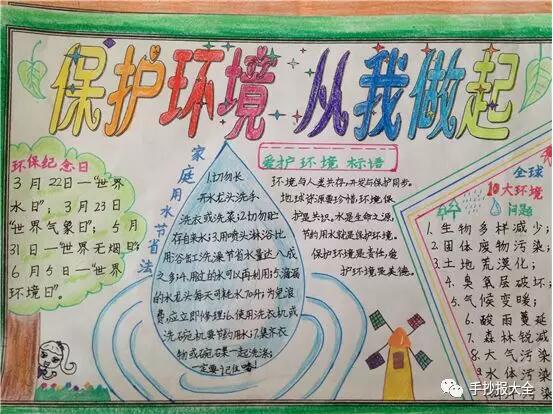 保护环境 从我做起
环保纪念日
3月22日—“世界
水日”；3月23日
“世界气象日”；5月
31日—“世界无烟日”；
6月5日—“世界
环境日”。
家庭用水节省法
1.切勿长
开水龙头洗手、
洗衣或洗菜；2.切勿贮
存自来水；3.用喷头淋浴比
用浴缸；洗澡节省水量达八成
之多；4.用过的水可以再利用；5.滴漏
的水龙头每天可耗水70升；为免浪
费，应立即修理；6.使用洗衣机或
洗碗机要节约用水；7.集齐衣
物或碗碟一起洗涤；
一定要记住噢！
爱护环境标语
环境与人类共存，开发与保护同步。
地球资源要珍惜，环境保
护是共识。水是生命之源，
节约用水就是保护环境。
保护环境是责任，爱
护环境是美德。
全球
10大环境
问题
1.生物多样减少；
2.固体废物污染；
3.土地荒漠化；
4.臭氧层破坏；
5.气候变暖；
6.酸雨蔓延
7.森林锐减
8.大气污染
9.水体污染
手抄报大全